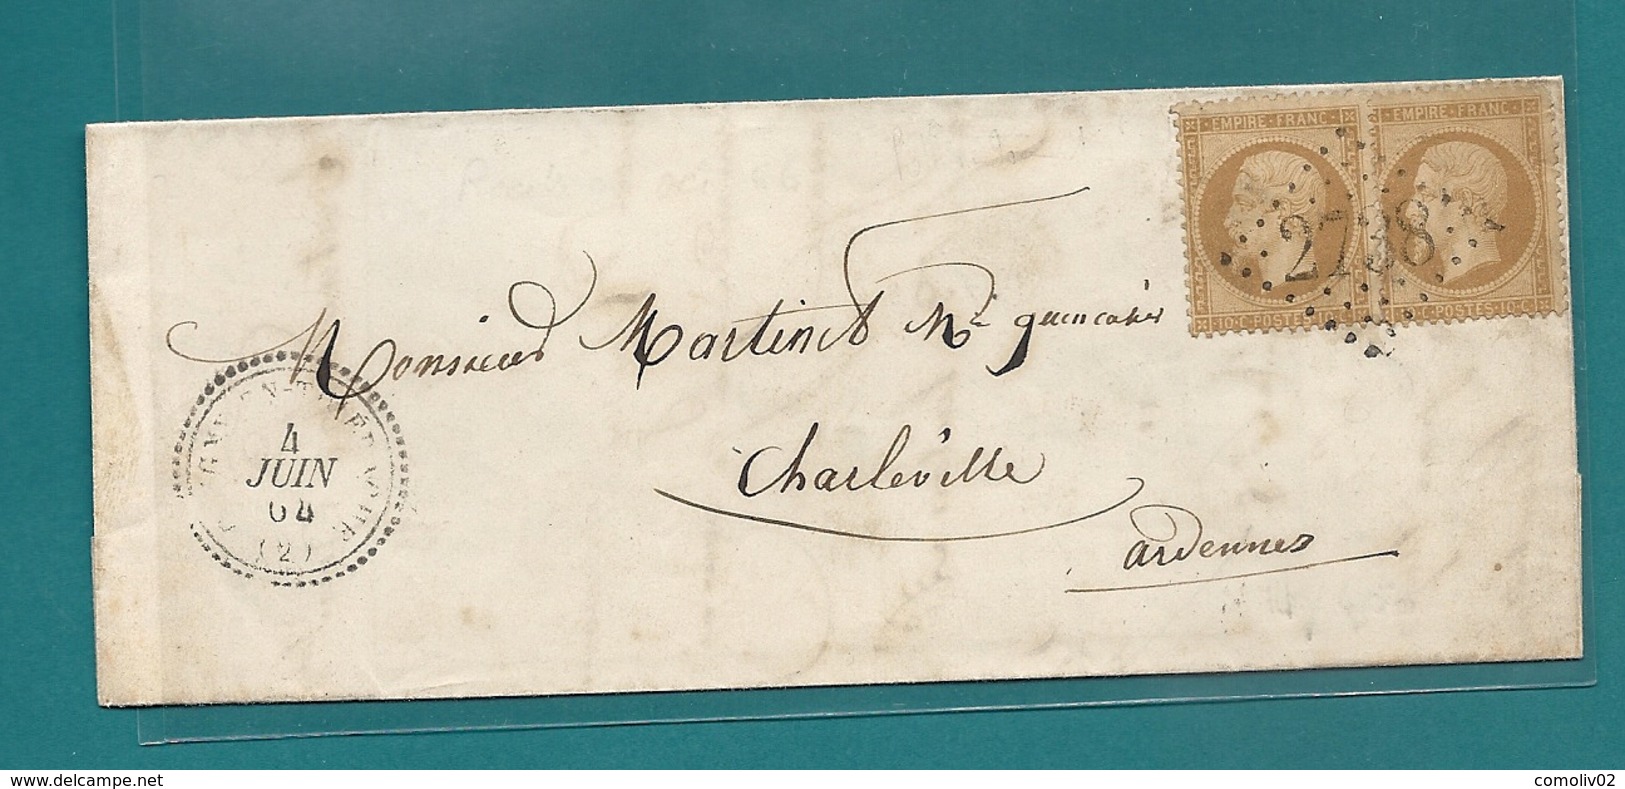 EMPIRE · FRANC ·
EMPIRE · FRANC ·
2738
· 10 · C · POSTES · 10 · C ·
· 10 · C · POSTES · 10 · C ·
Monsieur Martinet Md quincailler
Charleville
ardennes
4
JUIN
64
(2)
www.delcampe.net
comoliv02